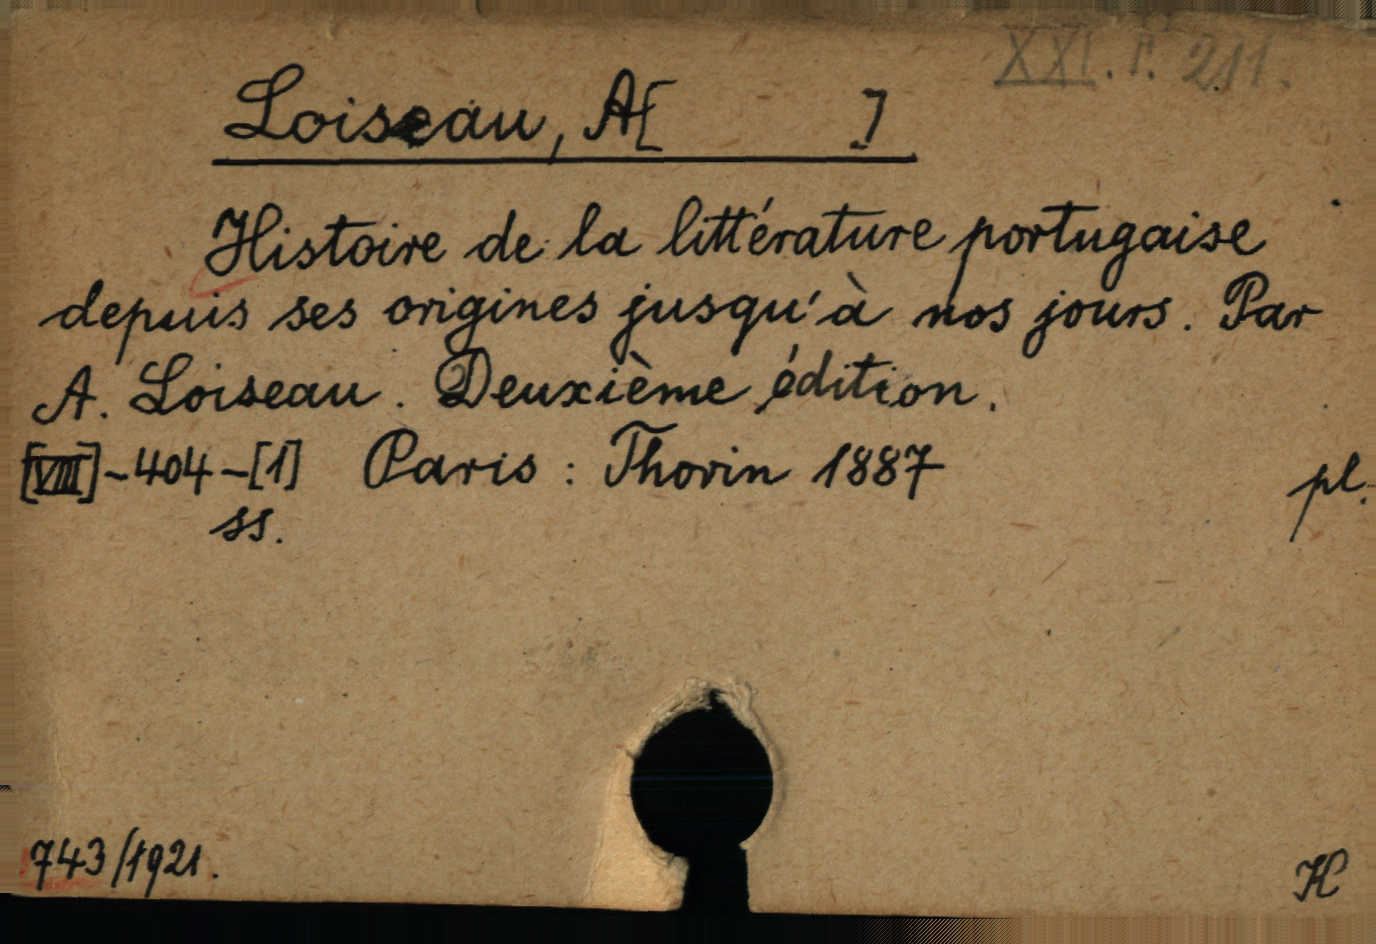 XXI. r. 211.
Loiseau, A[ ]
Histoire de la littérature portugaise
depuis ses origines jusqu'à nos jours. Par
A. Loiseau. Deuxième édition.
[VIII]-404-[1] Paris: Thorin 1887 pl.
ss.
743/1921. H